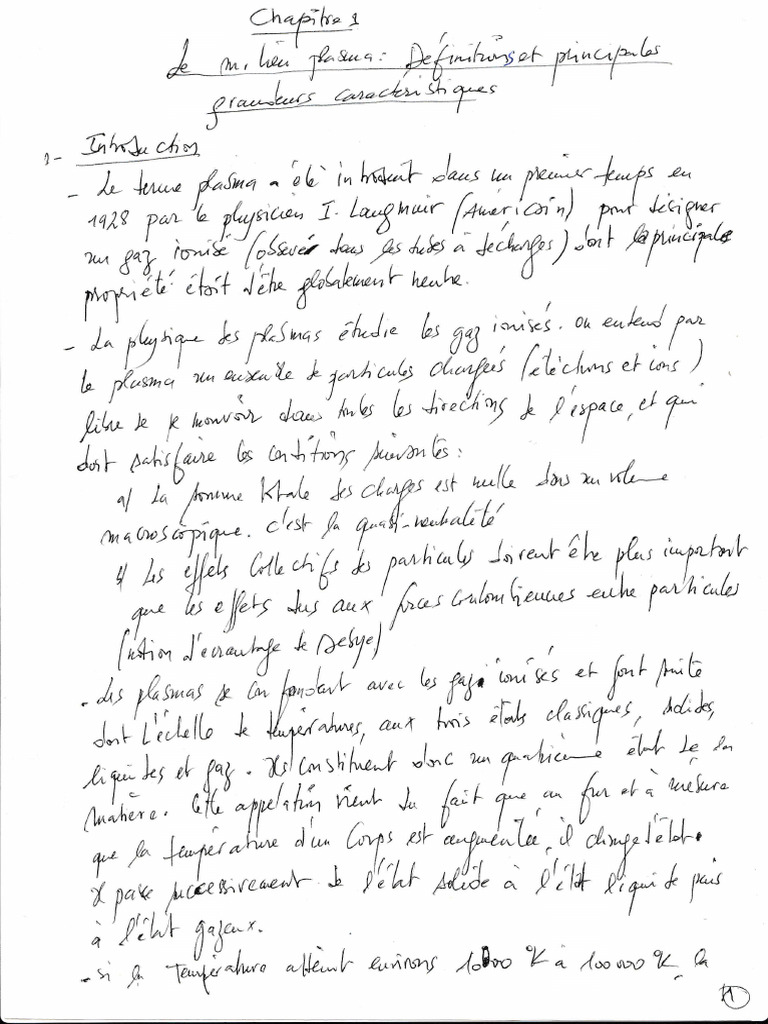 Chapitre 1
Le milieu plasma: Définitions et principales
grandeurs caractéristiques
1- Introduction
- Le terme plasma a été introduit dans un premier temps en
1928 par le physicien I. Langmuir (Américain) pour désigner
un gaz ionisé (observé dans les tubes à décharges) dont la principale
propriété était d'être globalement neutre.
- La physique des plasmas étudie les gaz ionisés. on entend par
le plasma un ensemble de particules chargées (éléctrons et ions)
libre de se mouvoir dans toutes les directions de l'espace, et qui
doit satisfaire les conditions suivantes:
a/ La somme totale des charges est nulle dans un volume
macroscopique. c'est la quasi-neutralité
b/ Les effets collectifs des particules doivent être plus important
que les effets dus aux forces coulombiennes entre particules
(notion d'écrantage de Debye)
- Les plasmas se confondant avec les gaz ionisés et font suite
dont l'échelle de températures, aux trois états classiques, solides,
liquides et gaz. Ils constituent donc un quatrième état de la
matière. Cette appelation vient du fait que au fur et à mesure
que la température d'un Corps est augmentée, il change d'état.
Il passe successivement de l'état solide à l'état liquide puis
à l'état gazeux.
- si la température atteint environs 10000 °K à 100 000 °K, la
1